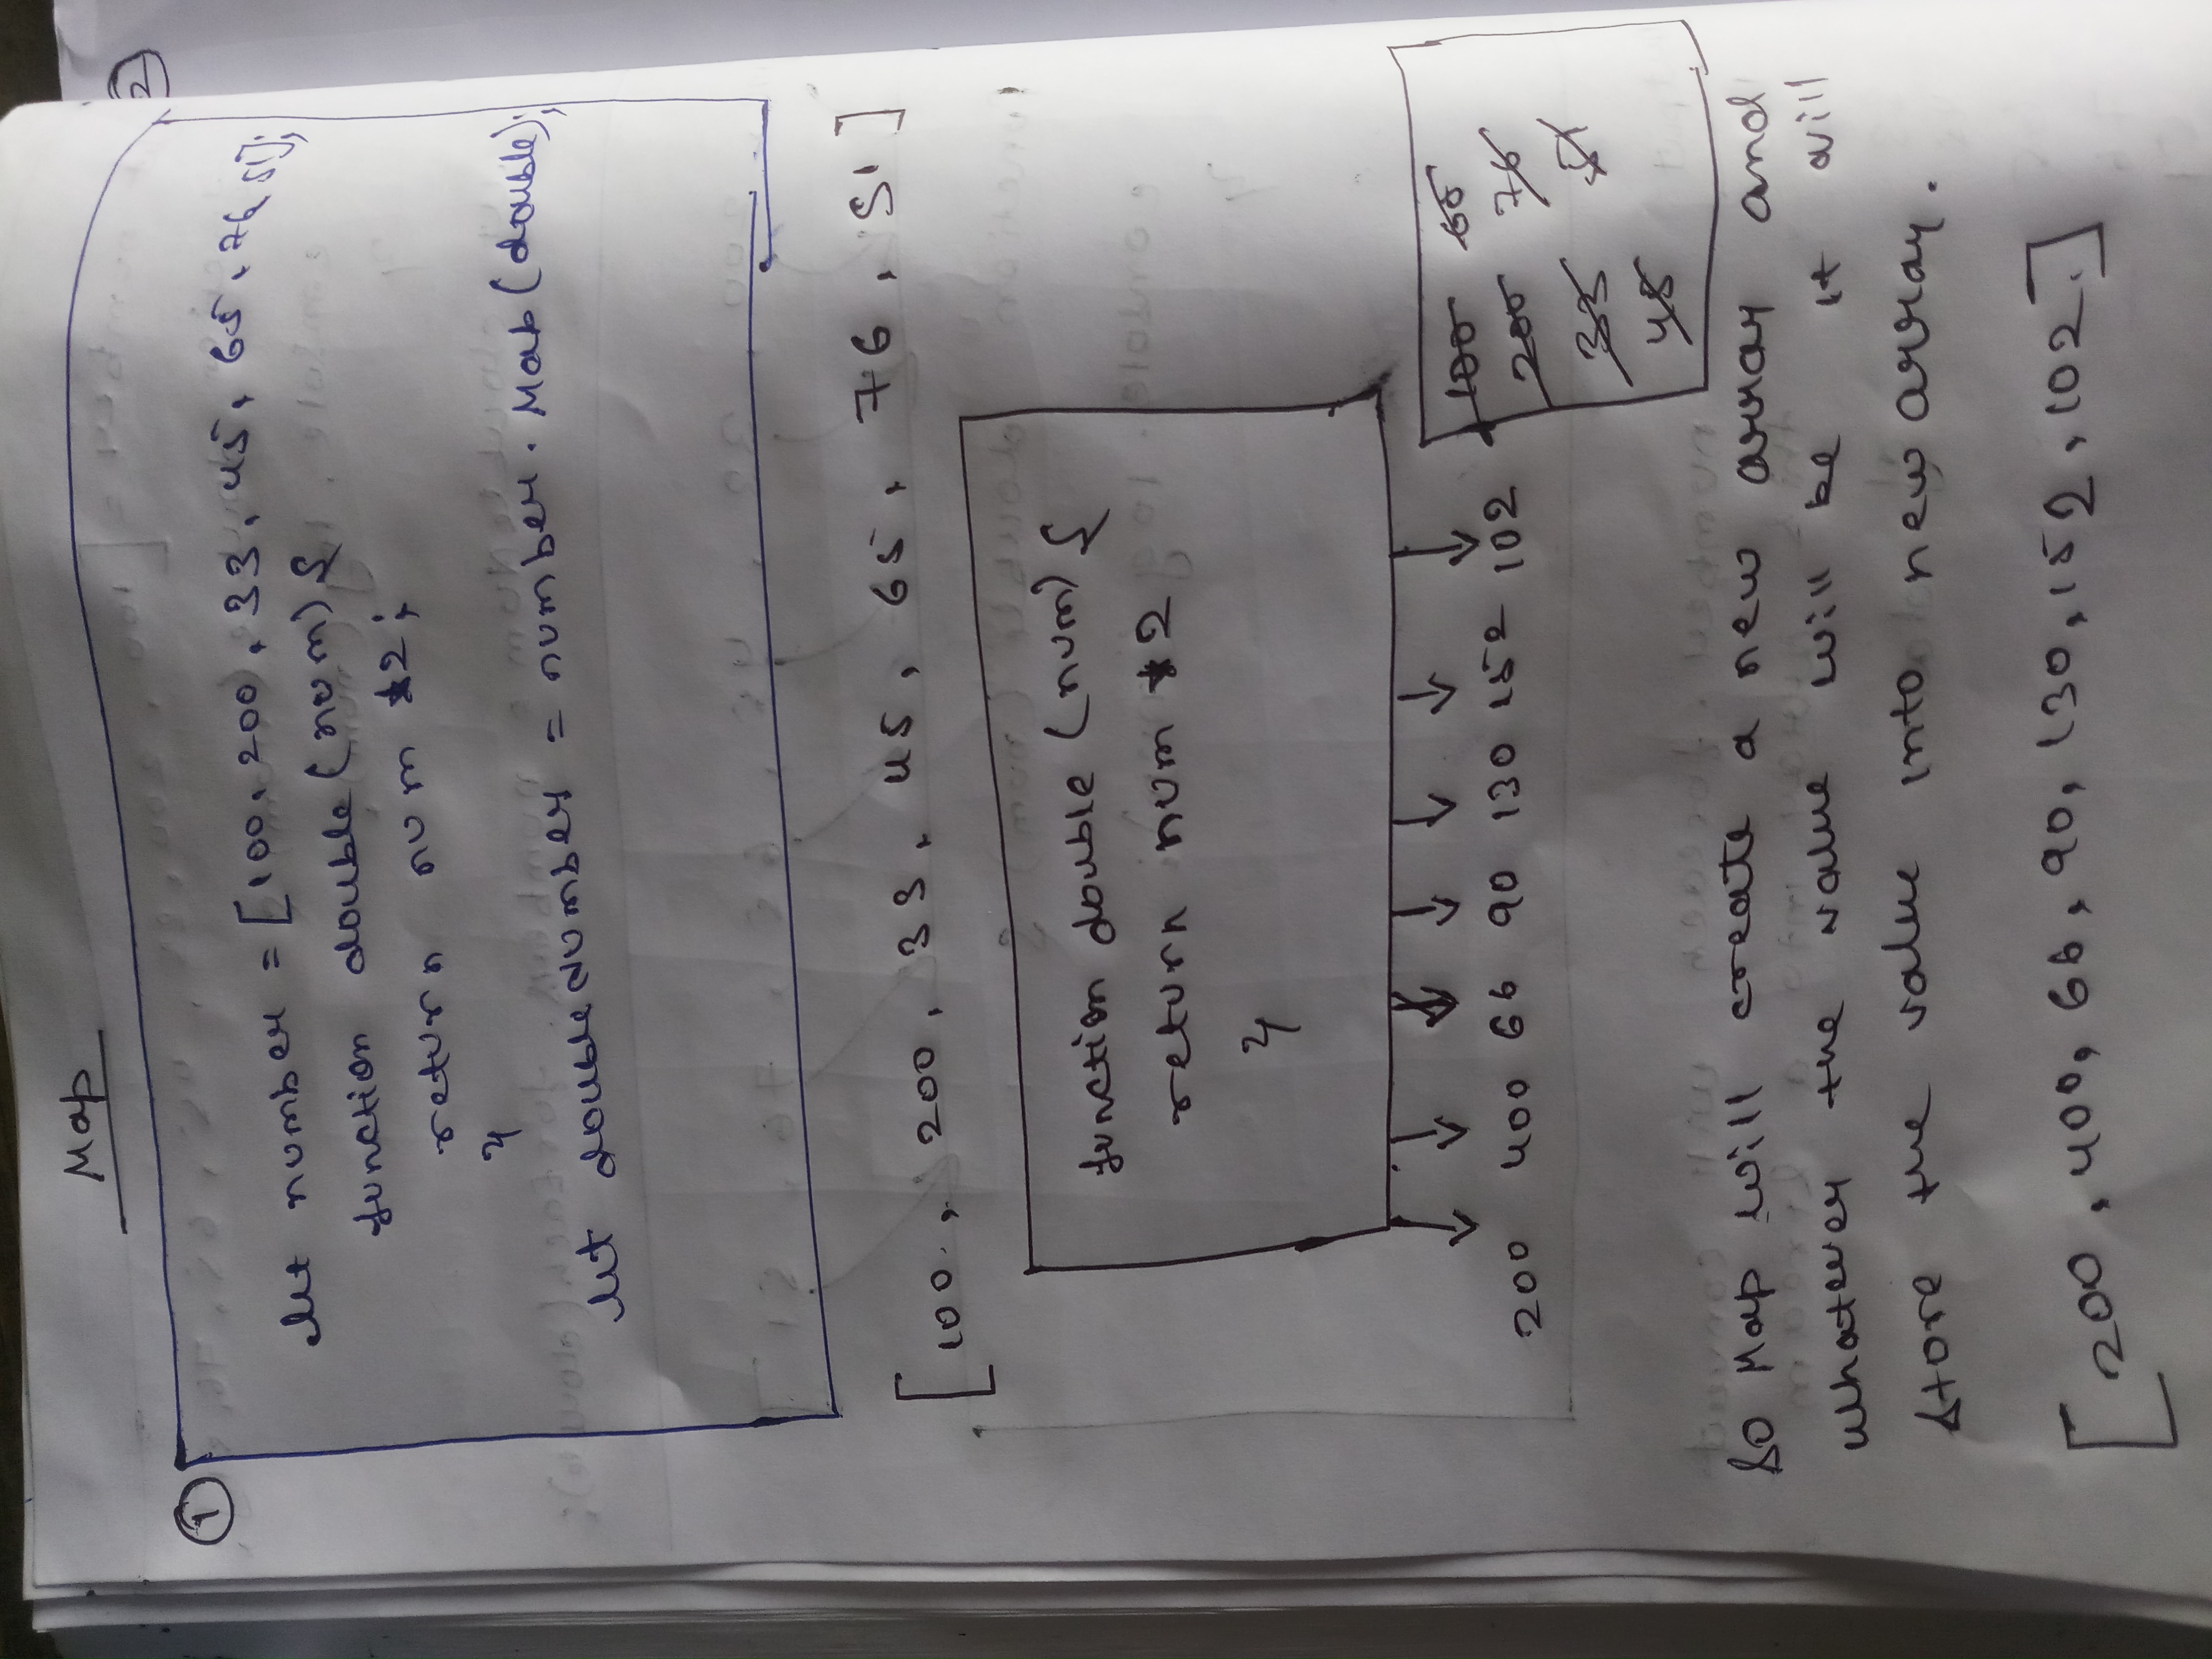 Map
1
2
let number = [100, 200, 33, 45, 65, 76, 51];
function double(num) {
return num *2;
}
let doubleNumber = number.Map(double);
[100, 200, 33, 45, 65, 76, 51]
function double (num) {
return num *2
}
200 400 66 90 130 152 102
100 65
200 76
33 51
45
So Map will create a new array and
whatever the value will be it will
store the value into new array.
[200, 400, 66, 90, 130, 152, 102.]